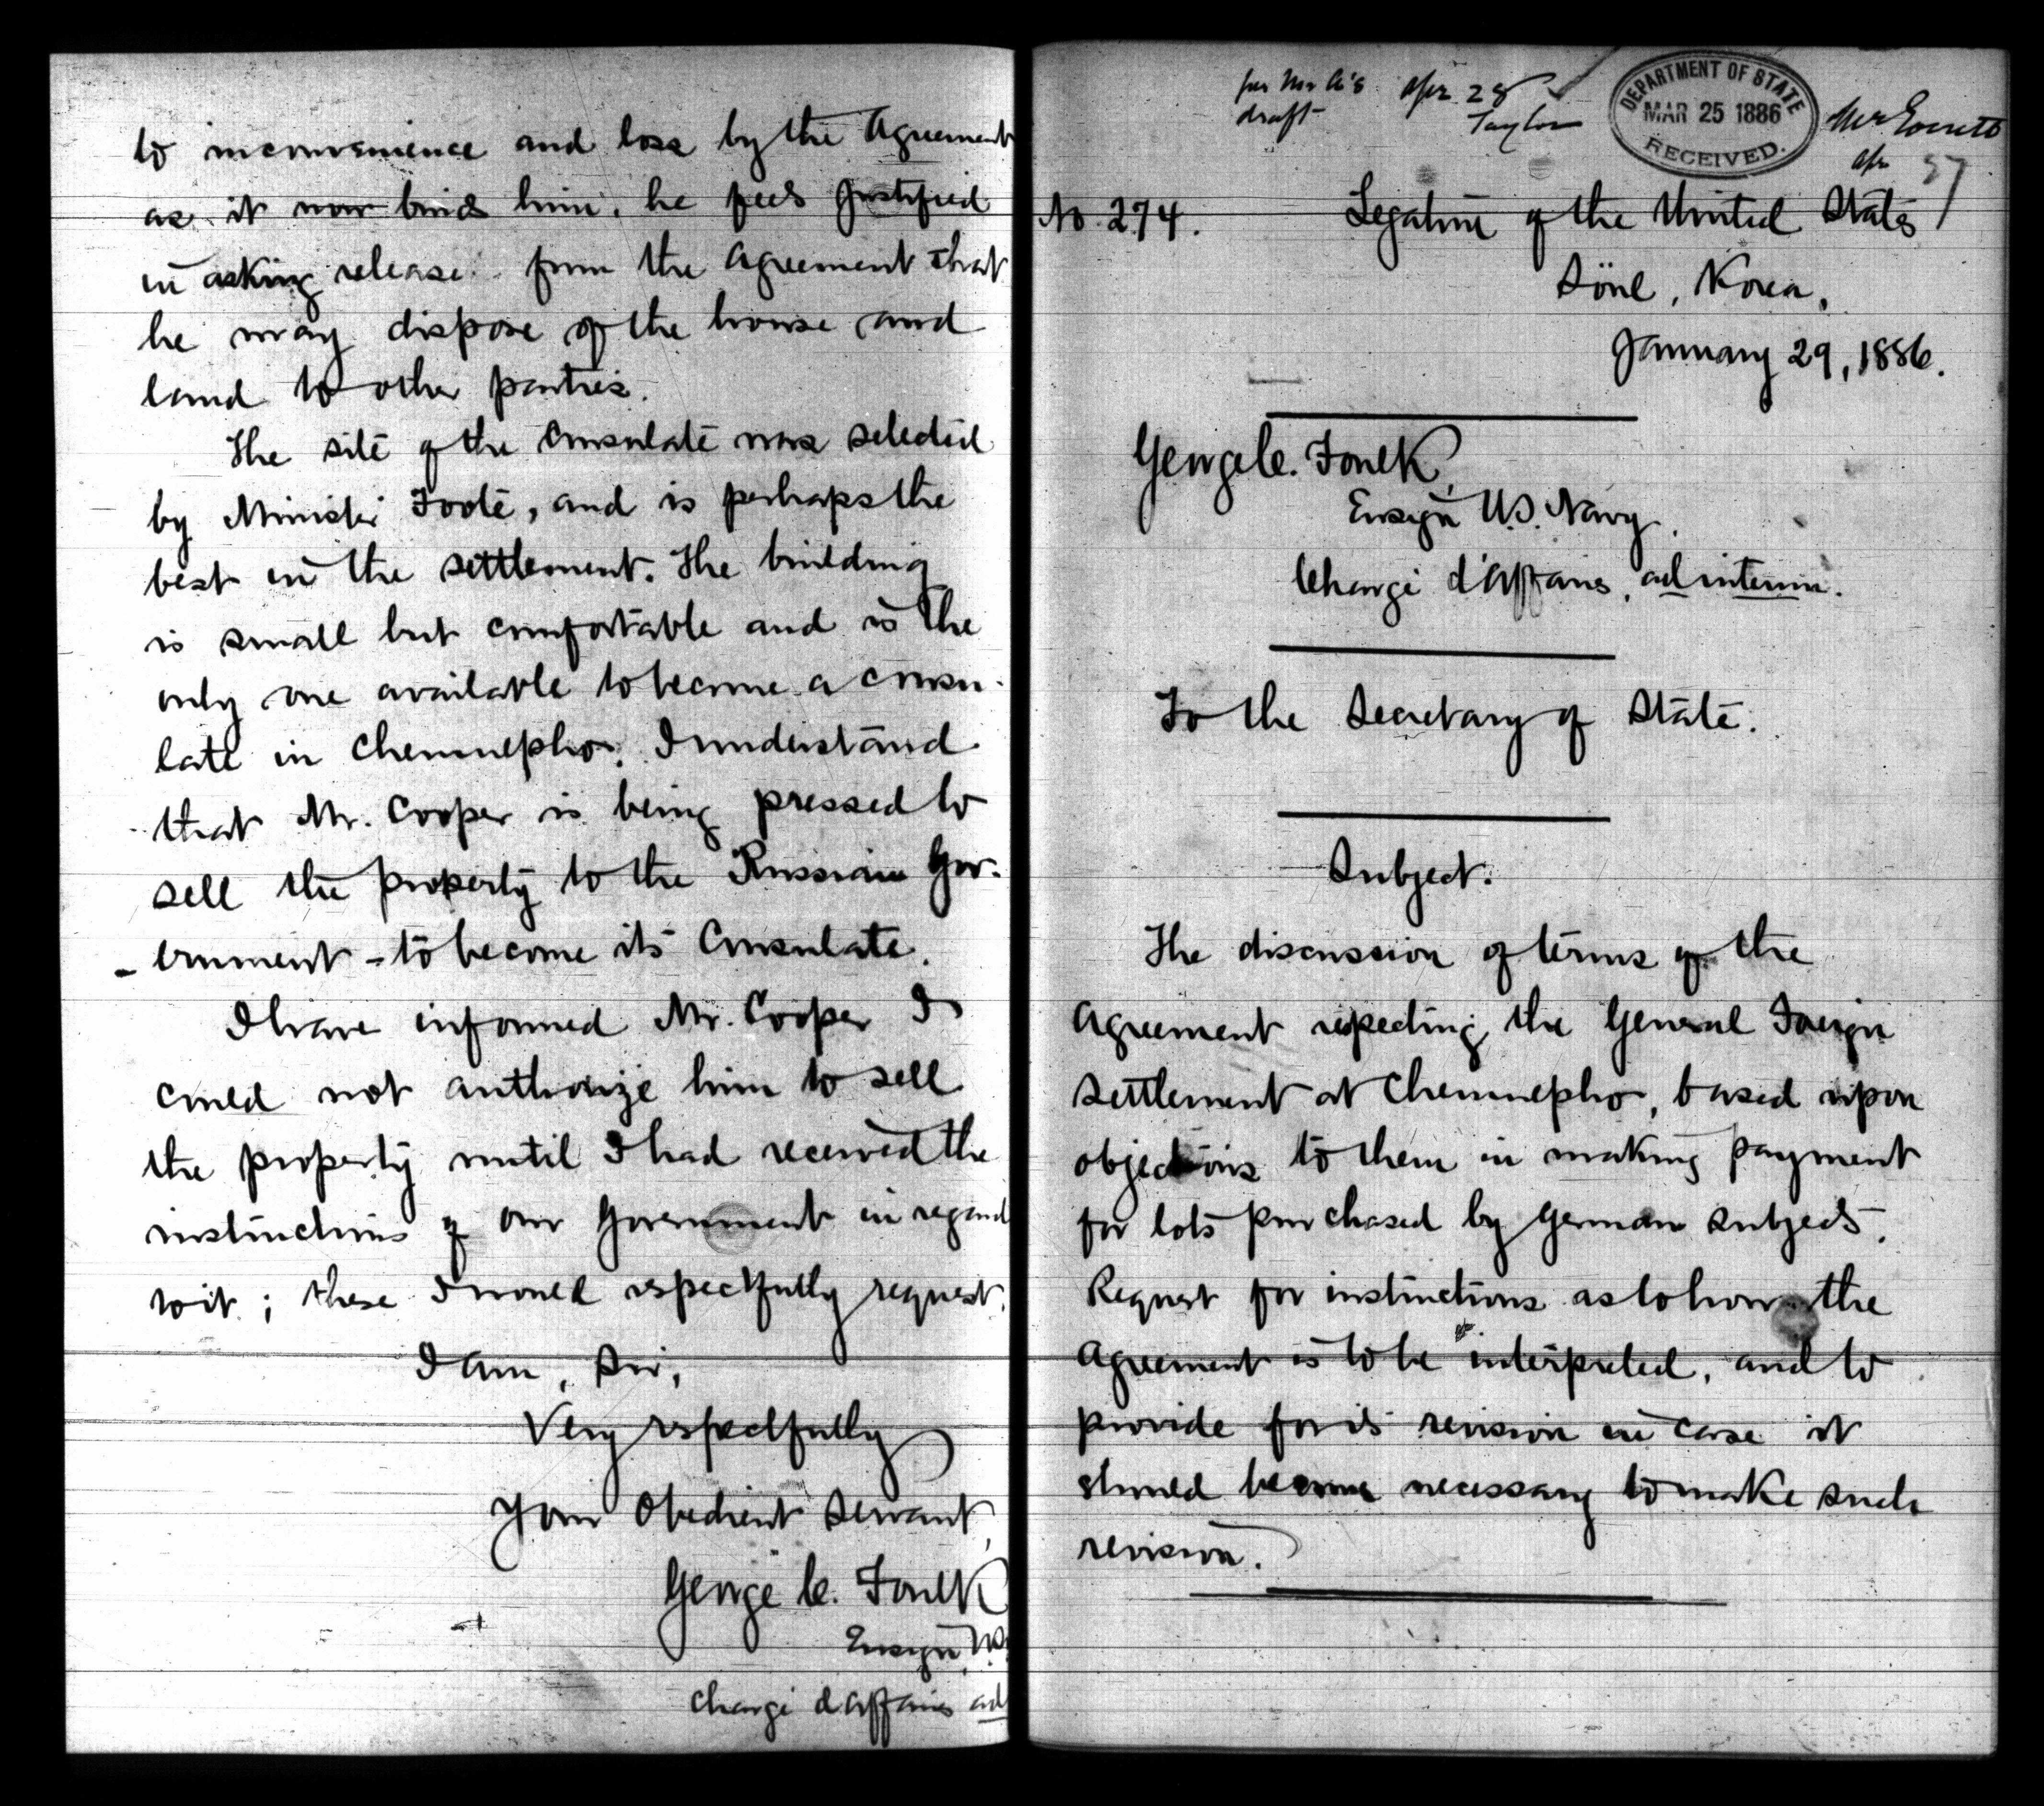 to inconvenience and loss by the Agreement
as it now binds him, he feels justified
in asking release from the Agreement that
he may dispose of the house and
land to other parties.
The site of the Consulate was selected
by Minister Foote, and is perhaps the
best in the settlement. The building
is small but comfortable and is the
only one available to become a consu-
late in Chemulpho. I understand
that Mr. Cooper is being pressed to
sell the property to the Russian Gov-
ernment - to become its Consulate.
I have informed Mr. Cooper I
could not authorize him to sell
the property until I had received the
instructions of our Government in regard
to it; these I would respectfully request.
I am, Sir,
Very respectfully
Your Obedient Servant,
George C. Foulk
Ensign, U.S.
Chargé d'Affaires ad
per Mr C's
draft
Apr 28
Taylor
DEPARTMENT OF STATE
MAR 25 1886
RECEIVED.
Apr
57
No. 274.
Legation of the United States
Söul, Korea,
January 29, 1886.
George C. Foulk,
Ensign U.S. Navy.
Chargé d'Affaires, ad interim.
To the Secretary of State.
Subject.
The discussion of terms of the
Agreement respecting the General Foreign
Settlement at Chemulpho, based upon
objections to them in making payment
for lots purchased by German Subjects.
Request for instructions as to how the
Agreement is to be interpreted, and to
provide for its revision in case it
should become necessary to make such
revision.